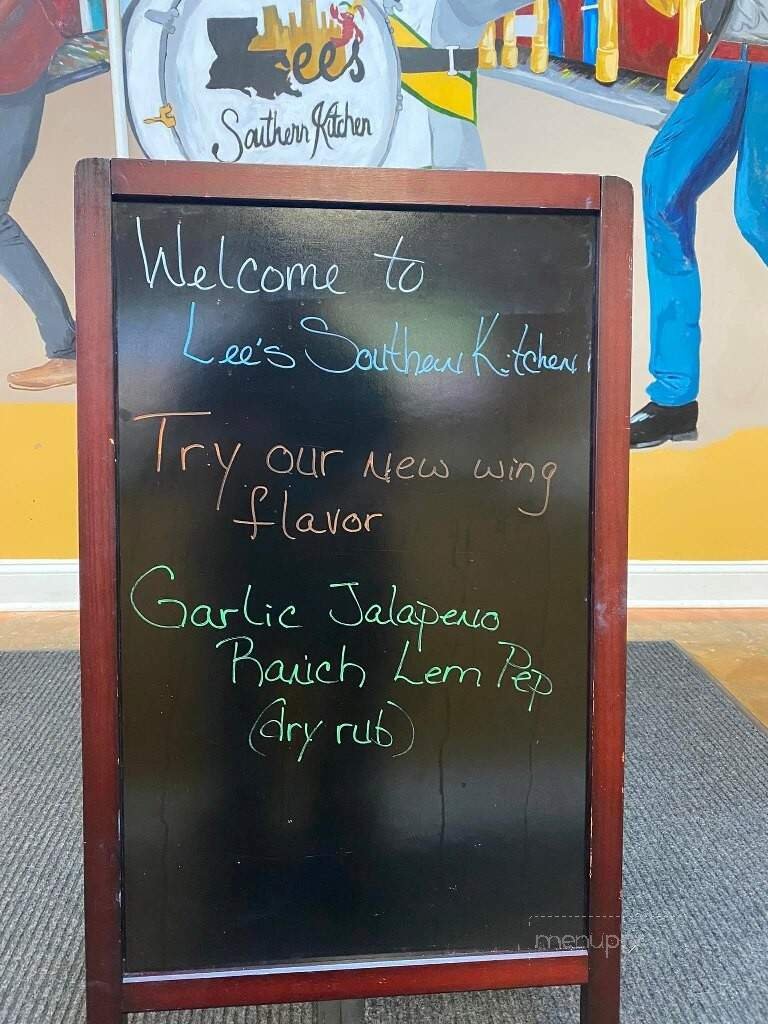 Lee's
Southern Kitchen
Welcome to
Lee's Southern Kitchen
Try our New wing
flavor
Garlic Jalapeno
Ranch Lem Pep
(dry rub)